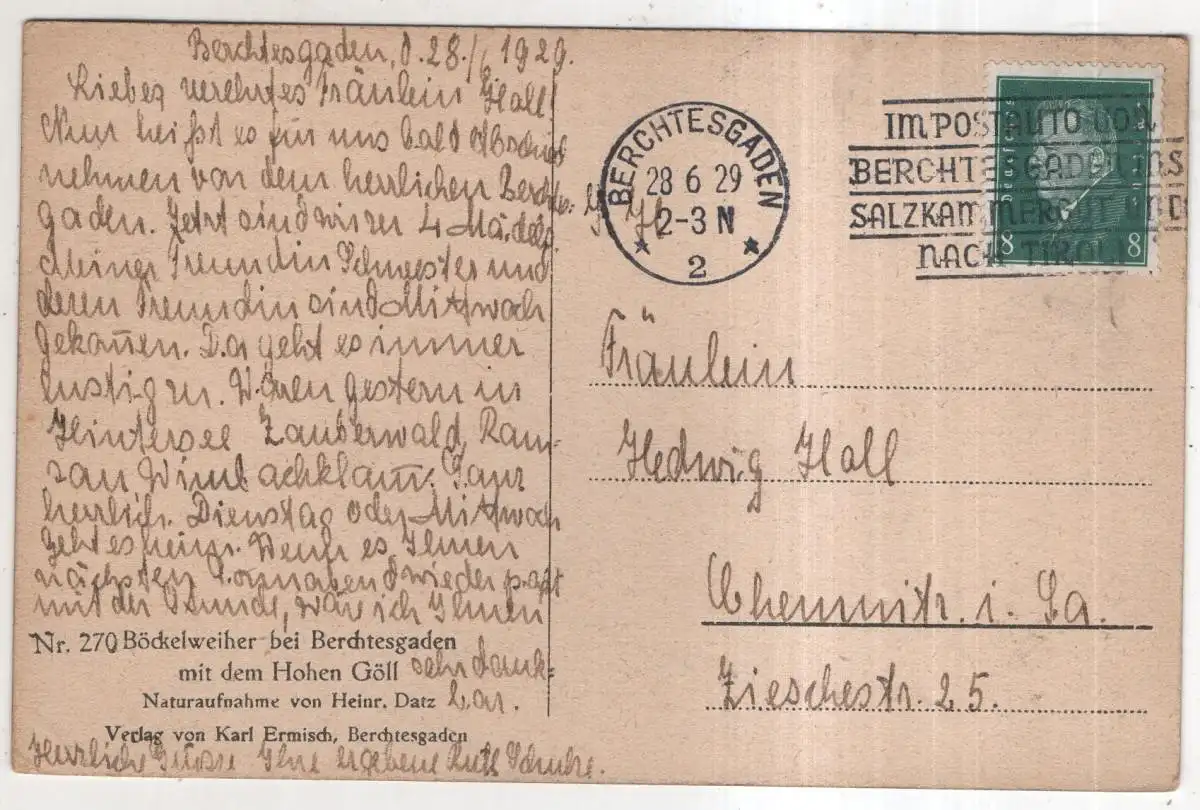 Berchtesgaden, d. 28./6 1929.
Liebes verehrtes Fräulein Hall!
Nun heißt es für uns bald Abschied
nehmen von dem herrlichen Berchtes-
gaden. Jetzt sind wir zu 4 Mädels.
Meiner Freundin Schwester und
deren Freundin sind Mittwoch
gekom̅en. Da geht es immer
lustig zu. Waren gestern in
Hintersee Zauberwald, Ram-
sau Wimbachklam̅. Ganz
herrlich. Dienstag oder Mittwoch
geht es heim. Wenn es Ihnen
nächsten Sonnabend wieder paßt
mit der Stunde, wäre ich Ihnen
sehr dank-
bar.
Herzliche Grüsse Ihre ergebene Ruth Schulze.
Nr. 270 Böckelweiher bei Berchtesgaden
mit dem Hohen Göll
Naturaufnahme von Heinr. Datz
Verlag von Karl Ermisch, Berchtesgaden
BERCHTESGADEN
28 6 29
2-3 N
2
IM POSTAUTO VON
BERCHTESGADEN INS
SALZKAMMERGUT UND
NACH TIROL!
Deutsches
8 8
Fräulein
Hedwig Hall
Chemnitz. i. Sa.
Zieschestr. 25.